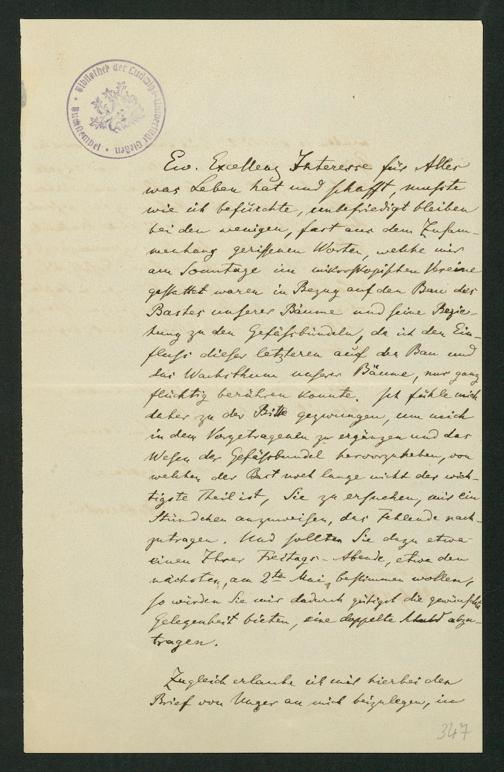 Bibliothek der Ludwigs-Universität Gießen
Handschriften
Ew. Excellenz Interesse für Alles
was Leben hat und schafft, mußte
wie ich befürchte, unbefriedigt bleiben
bei den wenigen, fast aus dem Zusam-
menhang gerissenen Worten, welche mir
am Sonntage im mikroskopischen Vereine
gestattet waren in Bezug auf den Bau des
Bastes unserer Bäume und seine Bezie-
hung zu den Gefäßbündeln, da ich den Ein-
fluß dieser letzteren auf den Bau und
das Wachsthum unserer Bäume, nur ganz
flüchtig berühren konnte. Ich fühle mich
daher zu der Bitte gezwungen, um mich
in dem Vorgetragenen zu ergänzen und das
Wesen der Gefäßbündel hervorzuheben, von
welchen der Bast noch lange nicht der wich-
tigste Theil ist, Sie zu ersuchen, mir ein
Stündchen anzuweisen, das Fehlende nach-
zutragen. Und sollten Sie dazu etwa
einen Ihrer Freitags-Abende, etwa den
nächsten, am 2ten Mai, bestimmen wollen,
so würden Sie mir dadurch gütigst die gewünschte
Gelegenheit bieten, eine doppelte Schuld abzu-
tragen.
Zugleich erlaube ich mir hierbei den
Brief von Unger an mich beizulegen, in
347